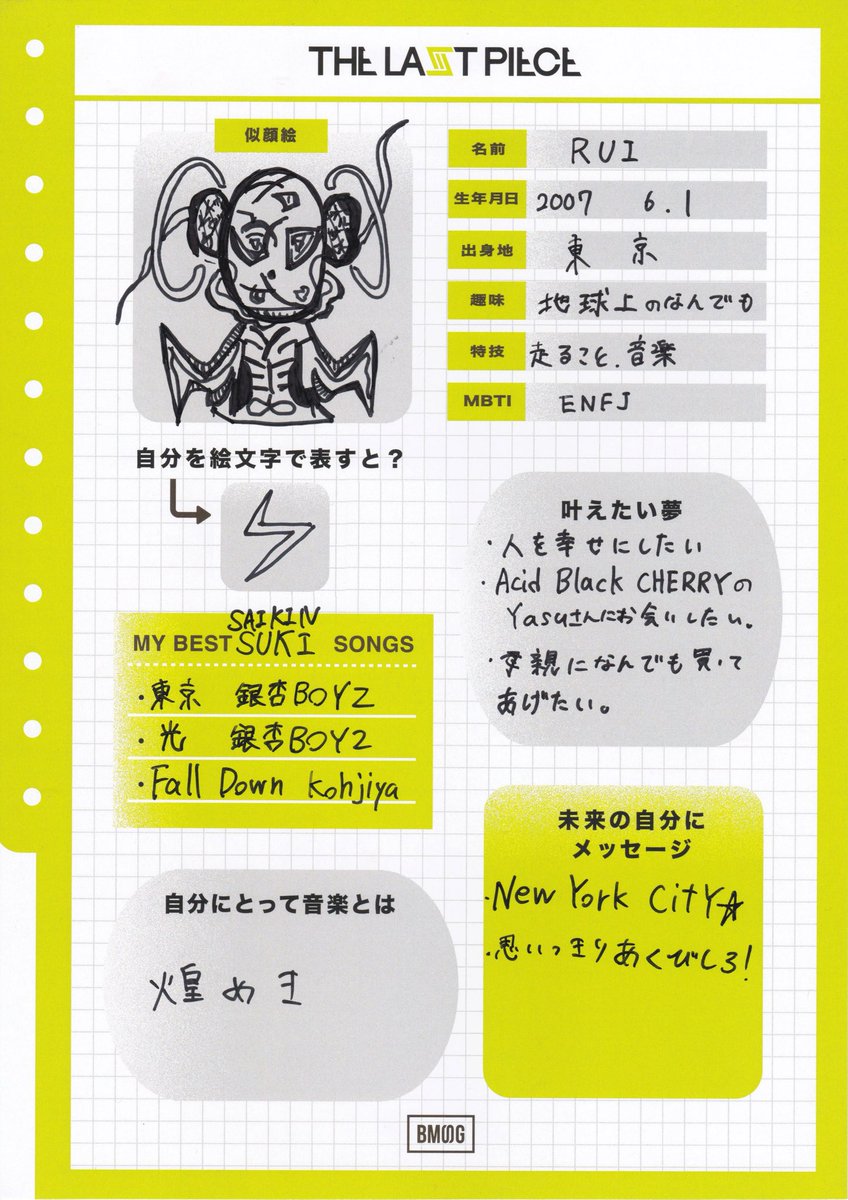 THE LAST PIECE
似顔絵
名前 RUI
生年月日 2007 6.1
出身地 東京
趣味 地球上のなんでも
特技 走ること、音楽
MBTI ENFJ
自分を絵文字で表すと?
SAIKIN
MY BEST SUKI SONGS
・東京 銀杏BOYZ
・光 銀杏BOYZ
・Fall Down Kohjiya
叶えたい夢
・人を幸せにしたい
・Acid Black CHERRYの
Yasuさんにお会いしたい。
・親になんでも買って
あげたい。
自分にとって音楽とは
煌めき
未来の自分に
メッセージ
・New York CitY☆
・思いっきりあくびしろ!
BMSG